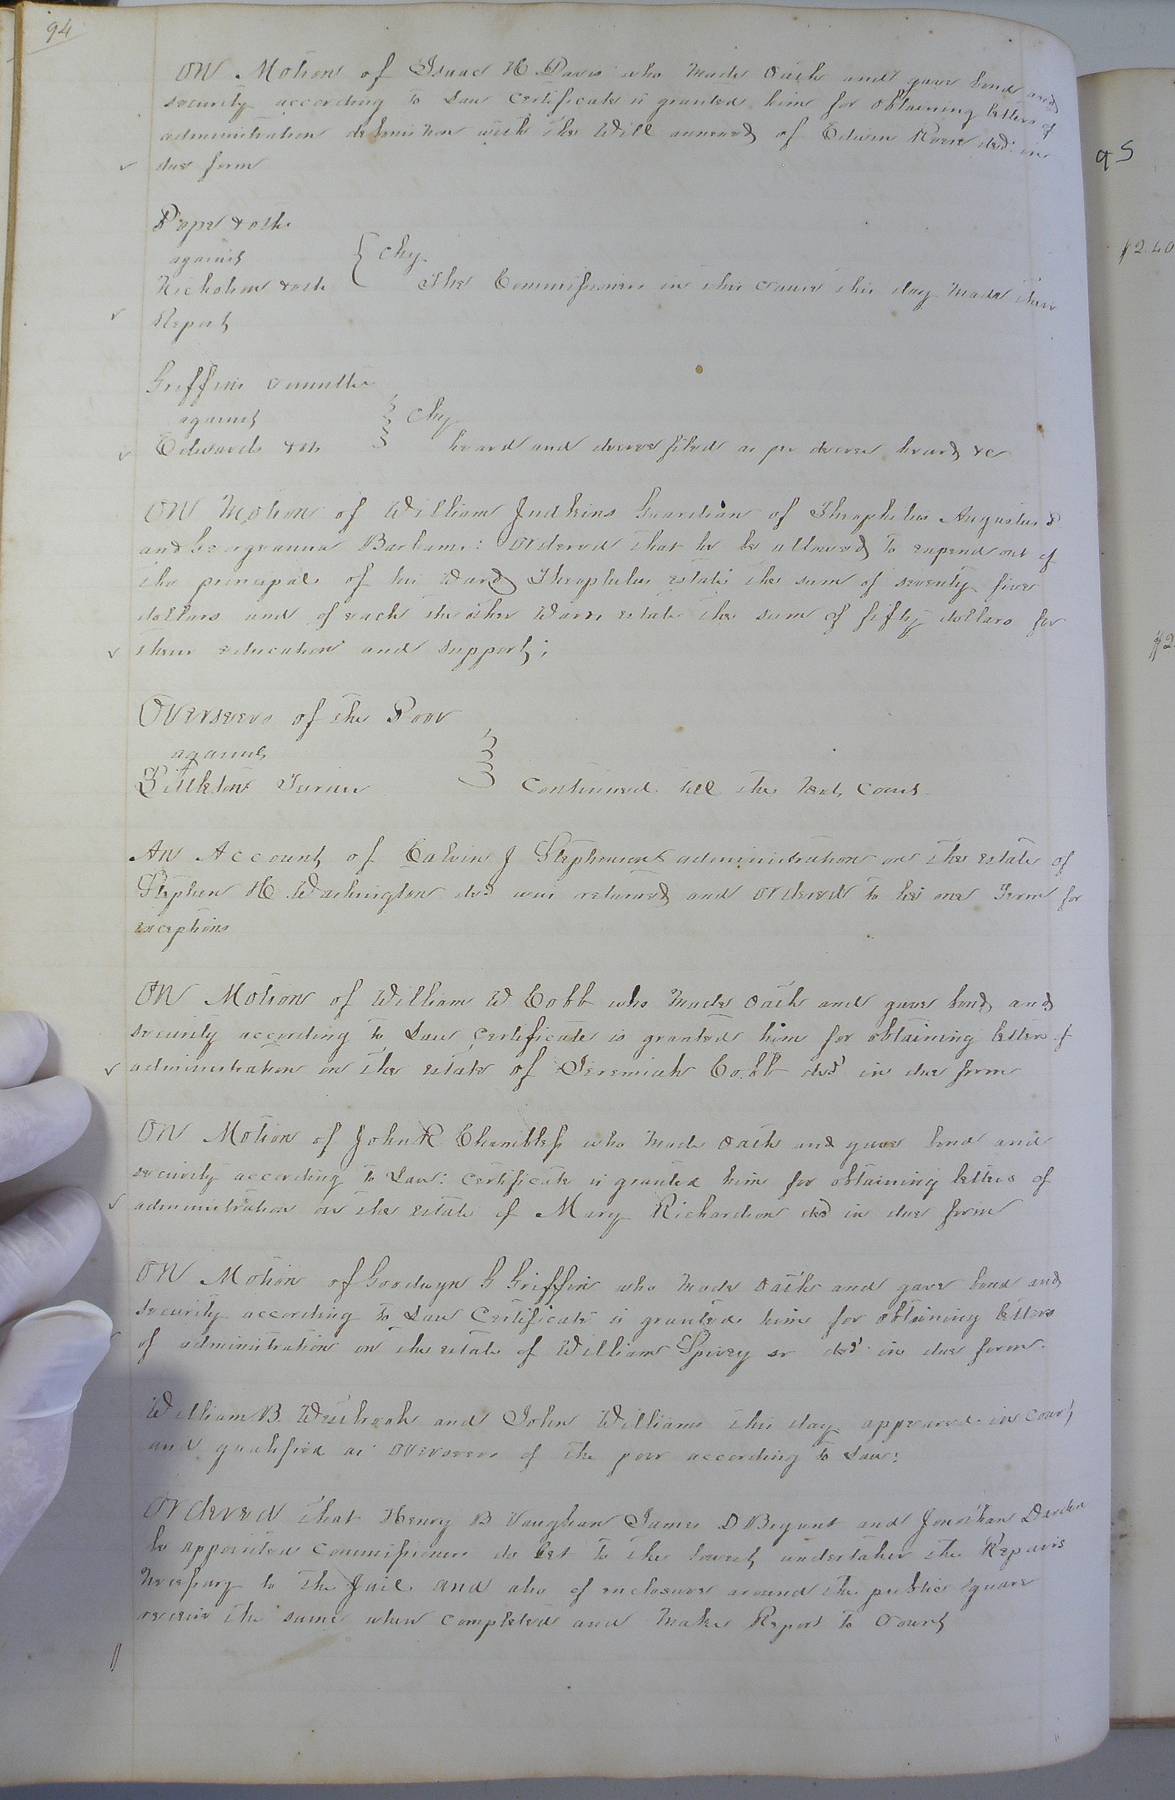 94
ON Motion of Isaac H Davis who made oath and gave bond and
security according to Law certificate is granted him for obtaining letters of
administration debonis non with the Will annexed of Edwin Rose decd in
due form
Pope & oth
against
chy
Nicholson & oth The Commissioners in this cause this day made their
Report
Griffin committee
against
chy
Edwards & oth heard and decree filed as per decree heard &c
ON Motion of William Judkins Guardian of Theophilus Augustus
and Georgeanna Barham: Ordered that he be allowed to expend out of
the principal of his Ward Theophilus estate the sum of seventy five
dollars and of each the other Wards estate the sum of fifty dollars for
their education and support;
Overseers of the Poor
against
Littleton Turner Continued till the Next Court
AN Account of Calvin J Stephensons administration on the estate of
Stephen H Washington decd was returned and ordered to lie one Term for
exceptions
ON Motion of William W Cobb who made oath and gave bond and
security according to Law certificate is granted him for obtaining letters of
administration on the estate of Jeremiah Cobb decd in due form
ON Motion of John R Chambless who made oath and gave bond and
security according to Law: certificate is granted him for obtaining letters of
administration on the estate of Mary Richardson decd in due form
ON Motion of Goodwyn G Griffin who made oath and gave bond and
security according to Law Certificate is granted him for obtaining letters
of administration on the estate of William Spivey sr decd in due form
William B. Westbrook and John Williams this day appeared in Court
and qualified as overseers of the poor according to Law:
Ordered that Henry B Vaughan James D Bryant and Jonathan Darden
be appointed commissioners to let to the lowest undertaker the Repairs
Necessary to the Jail and also of enclosure around the public square
receive the same when completed and make Report to Court
95
$2.40
$2